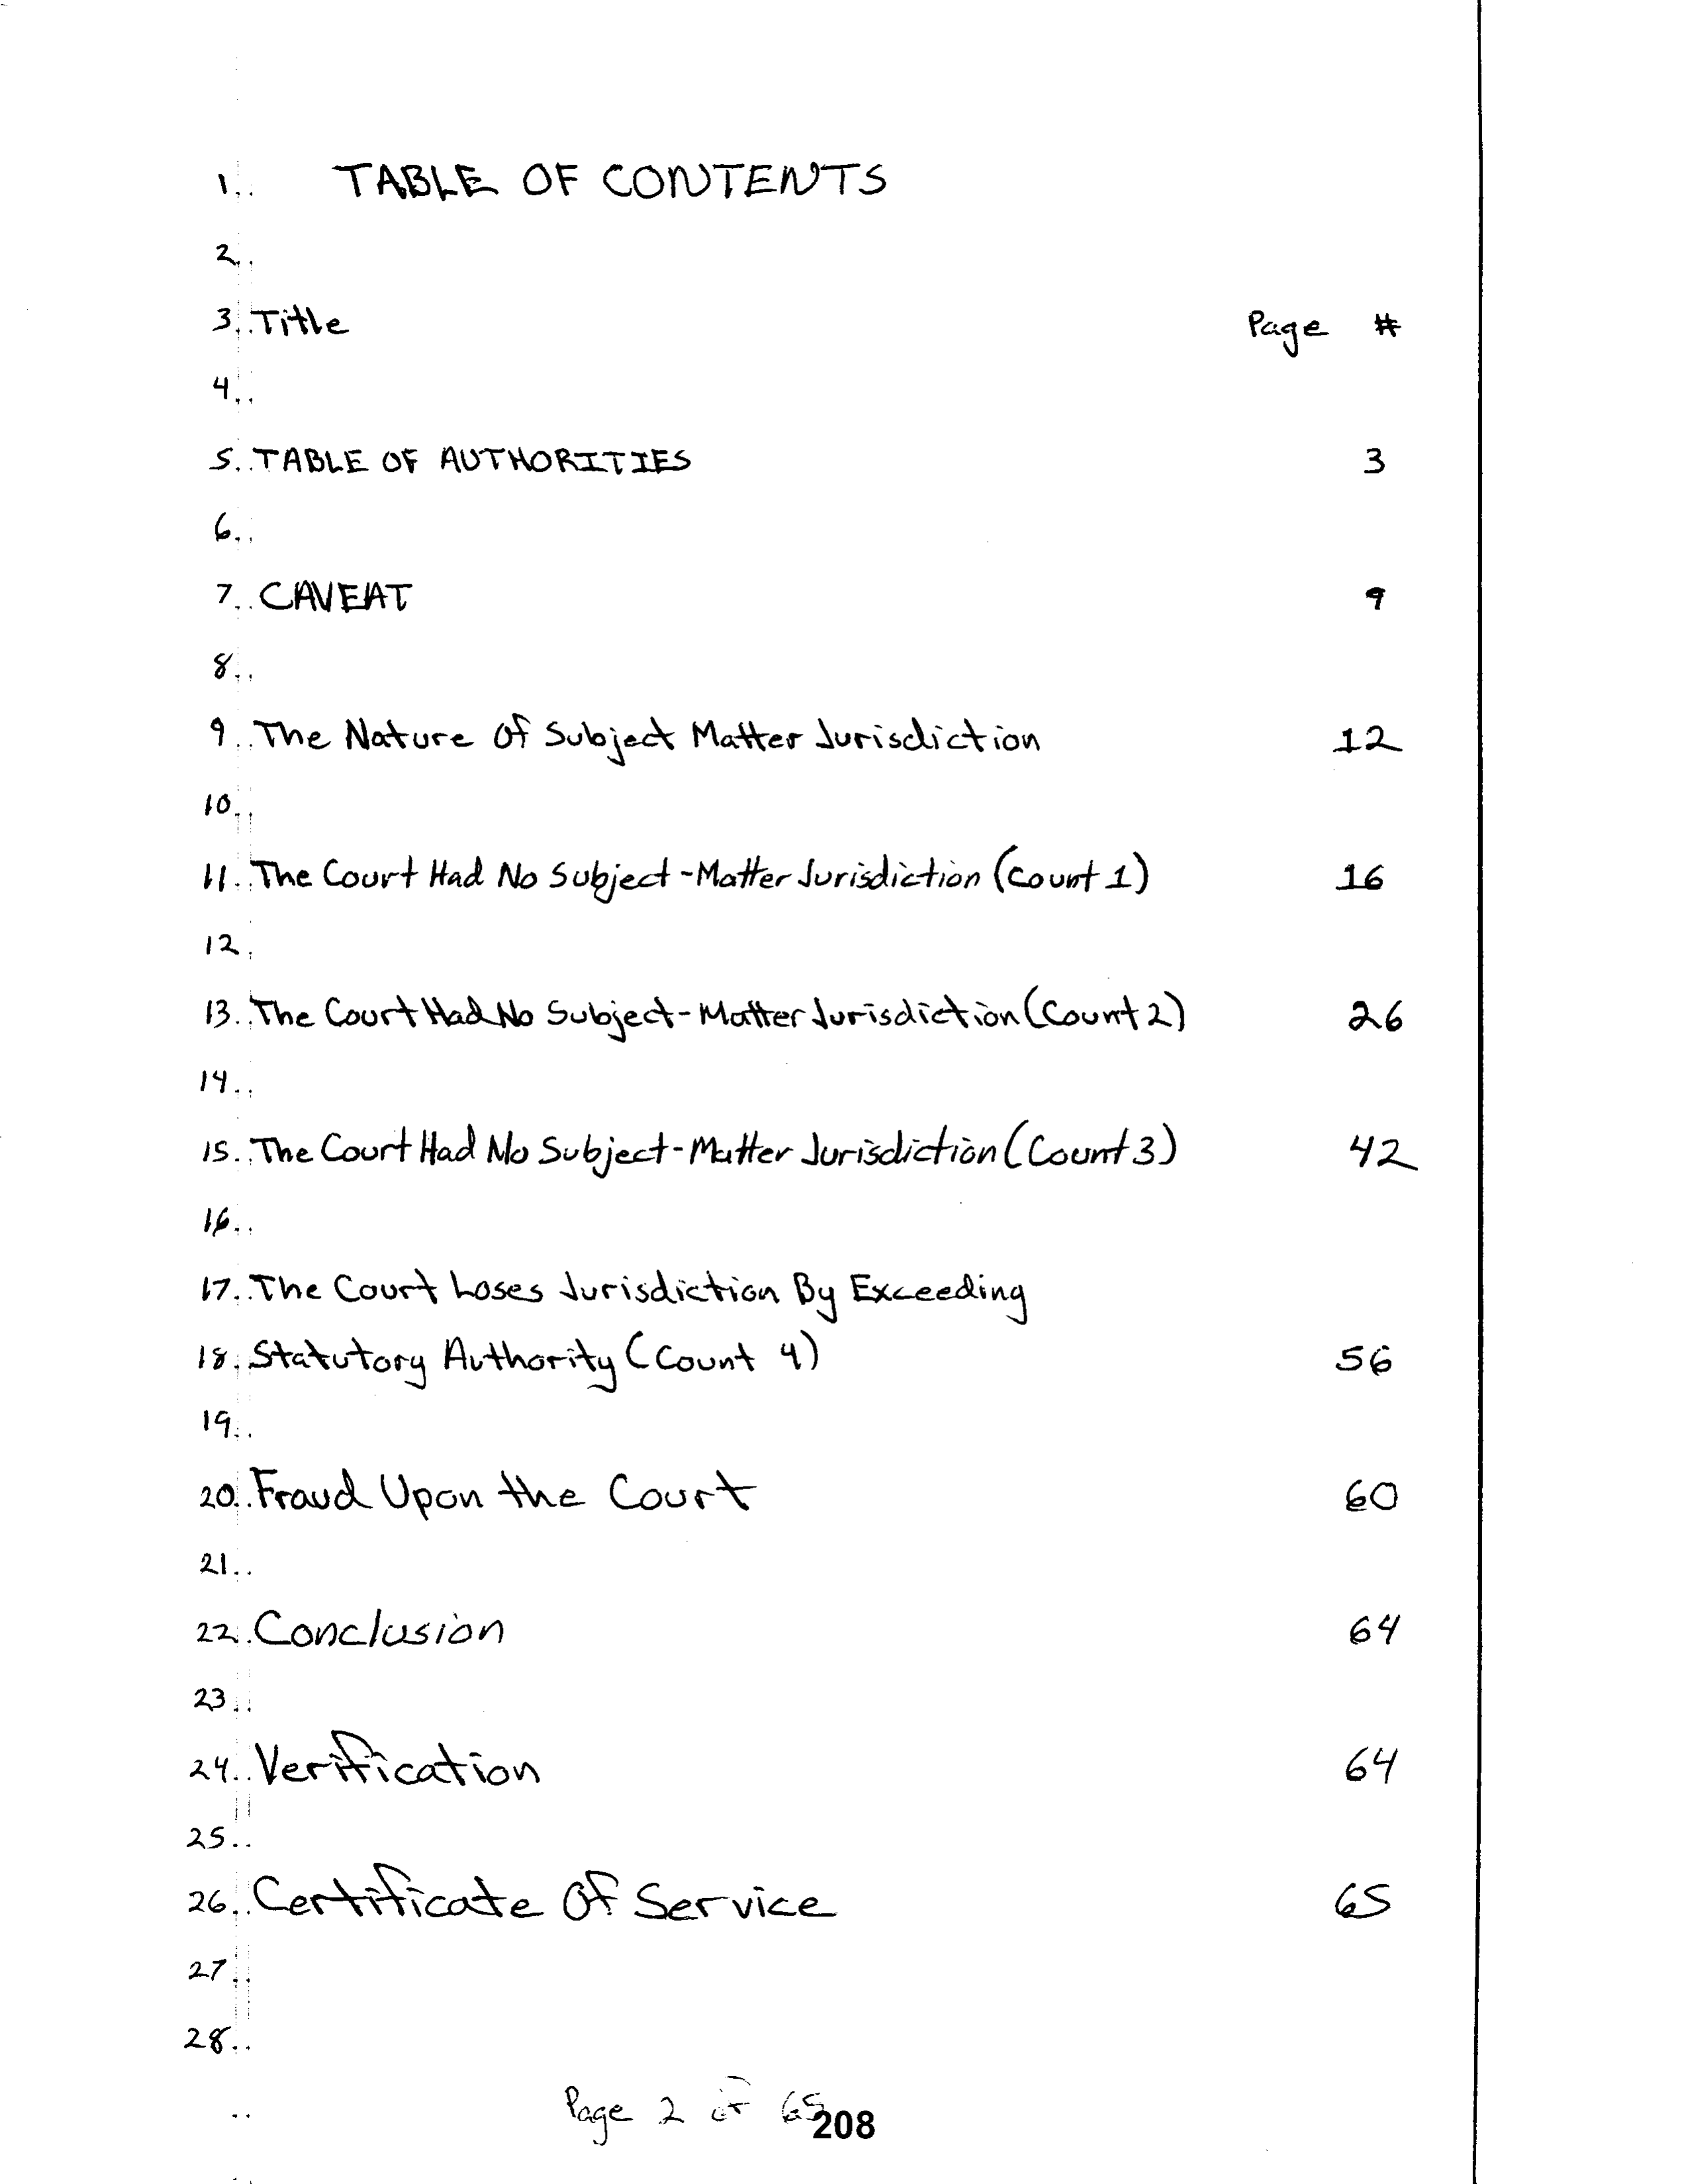 1. TABLE OF CONTENTS
2.
3. Title Page #
4.
5. TABLE OF AUTHORITIES 3
6.
7. CAVEAT 9
8.
9. The Nature Of Subject Matter Jurisdiction 12
10.
11. The Court Had No Subject-Matter Jurisdiction (Count 1) 16
12.
13. The Court Had No Subject-Matter Jurisdiction (Count 2) 26
14.
15. The Court Had No Subject-Matter Jurisdiction (Count 3) 42
16.
17. The Court Loses Jurisdiction By Exceeding
18. Statutory Authority (Count 4) 56
19.
20. Fraud Upon the Court 60
21.
22. Conclusion 64
23.
24. Verification 64
25.
26. Certificate Of Service 65
27.
28.
Page 2 of 65
208